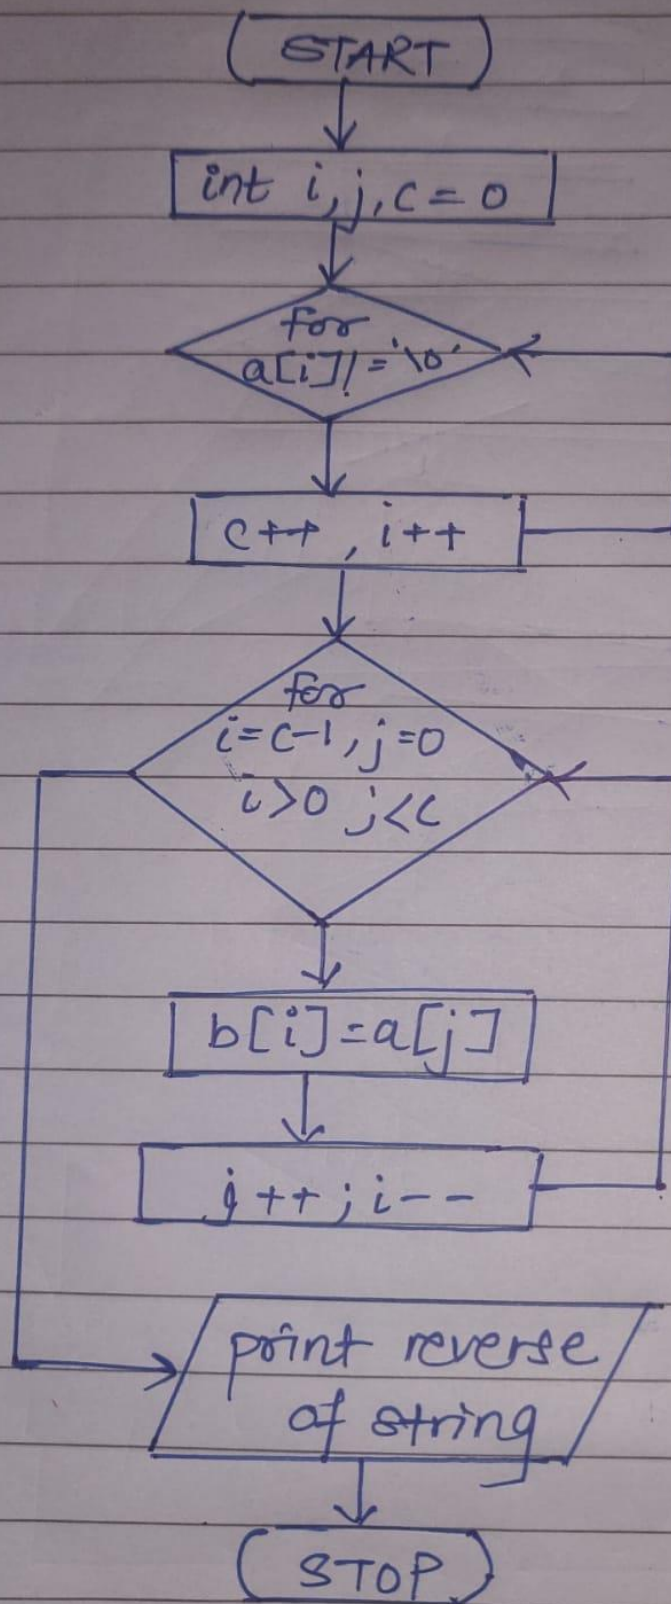 START
int i, j, c = 0
for
a[i]!='\0'
c++, i++
for
i=c-1, j=0
i>0 j<c
b[i]=a[j]
j++; i--
print reverse
of string
STOP